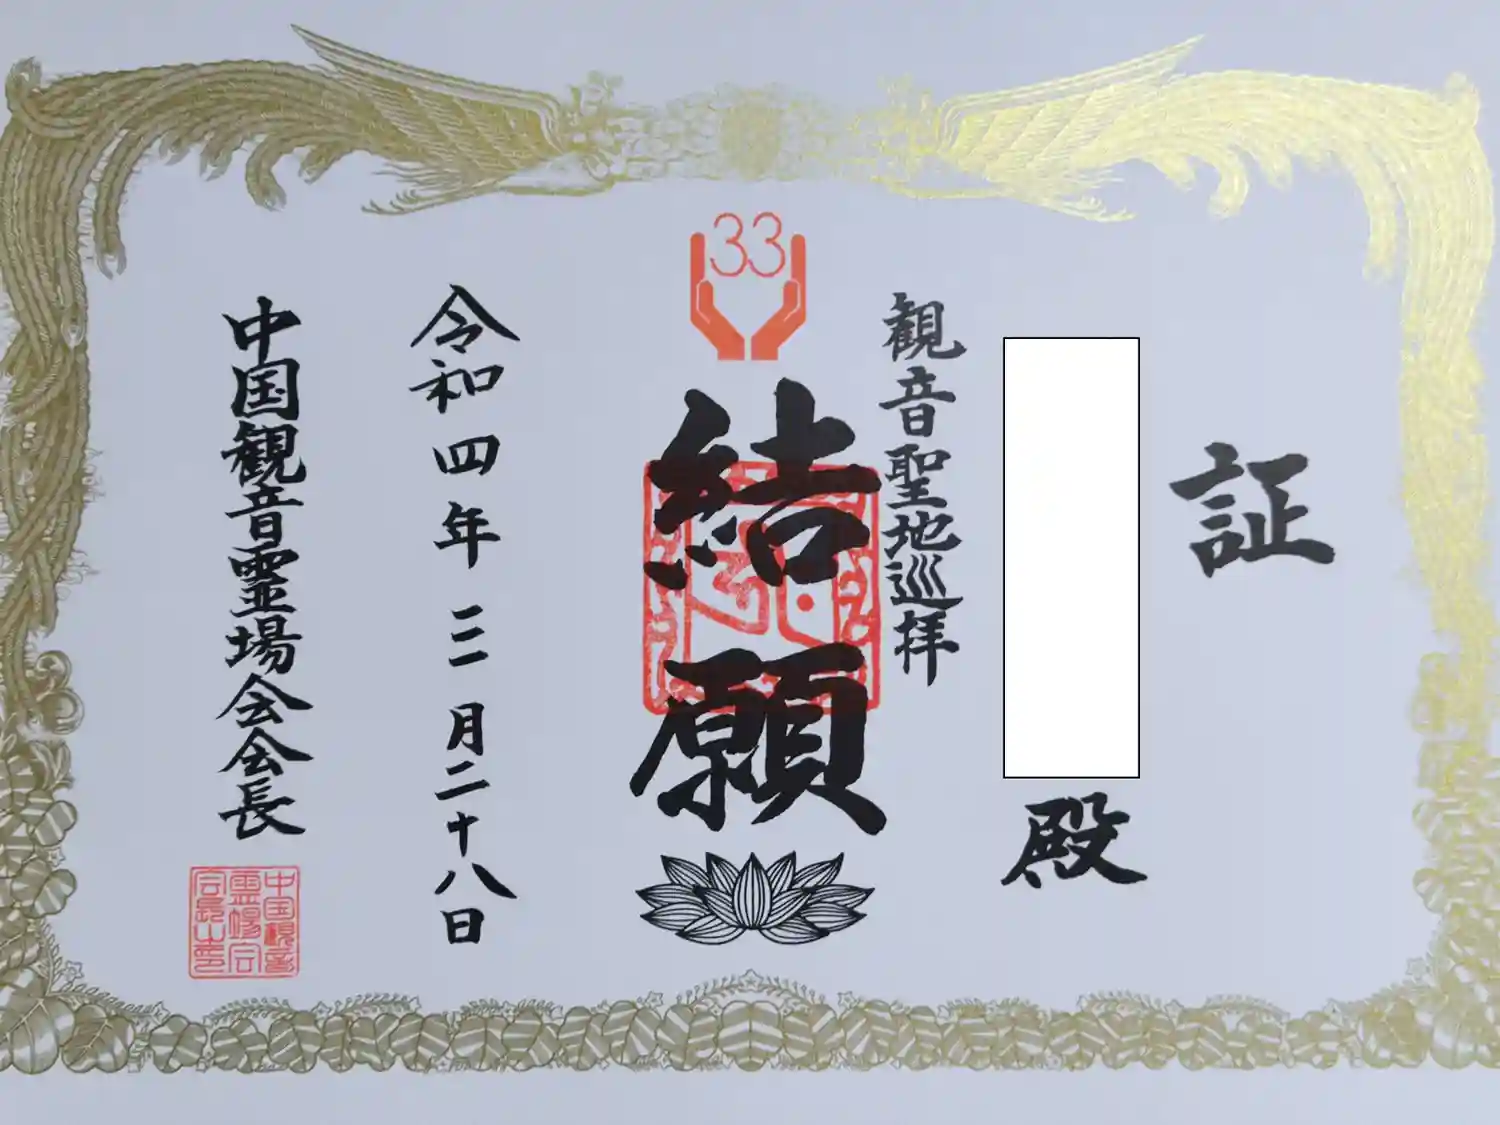 証
殿
観音聖地巡拝
33
結願
令和四年三月二十八日
中国観音霊場会会長
中国観音
霊場会
会長之印